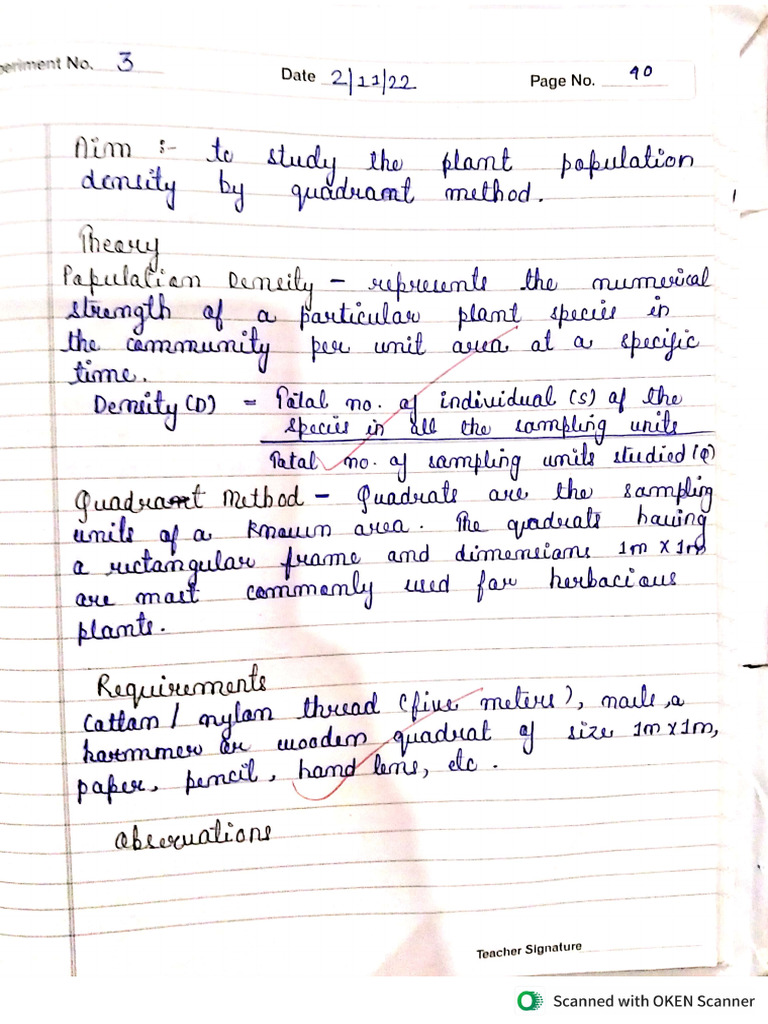 periment No. 3
Date 2/11/22
Page No. 40
Aim :- to study the plant population
density by quadrant method.
Theory
Population Density - represents the numerical
strength of a particular plant species in
the community per unit area at a specific
time.
Density (D) = Total no. of individual (s) of the
species in all the sampling units
Total no. of sampling units studied (Q)
Quadrant Method - Quadrats are the sampling
units of a known area. The quadrats having
a rectangular frame and dimensions 1m x 1m
are most commonly used for herbacious
plants.
Requirements
Cotton / nylon thread (five meters), nails, a
hammer or wooden quadrat of size 1m x 1m,
paper, pencil, hand lens, etc.
Observations
Teacher Signature
Scanned with OKEN Scanner